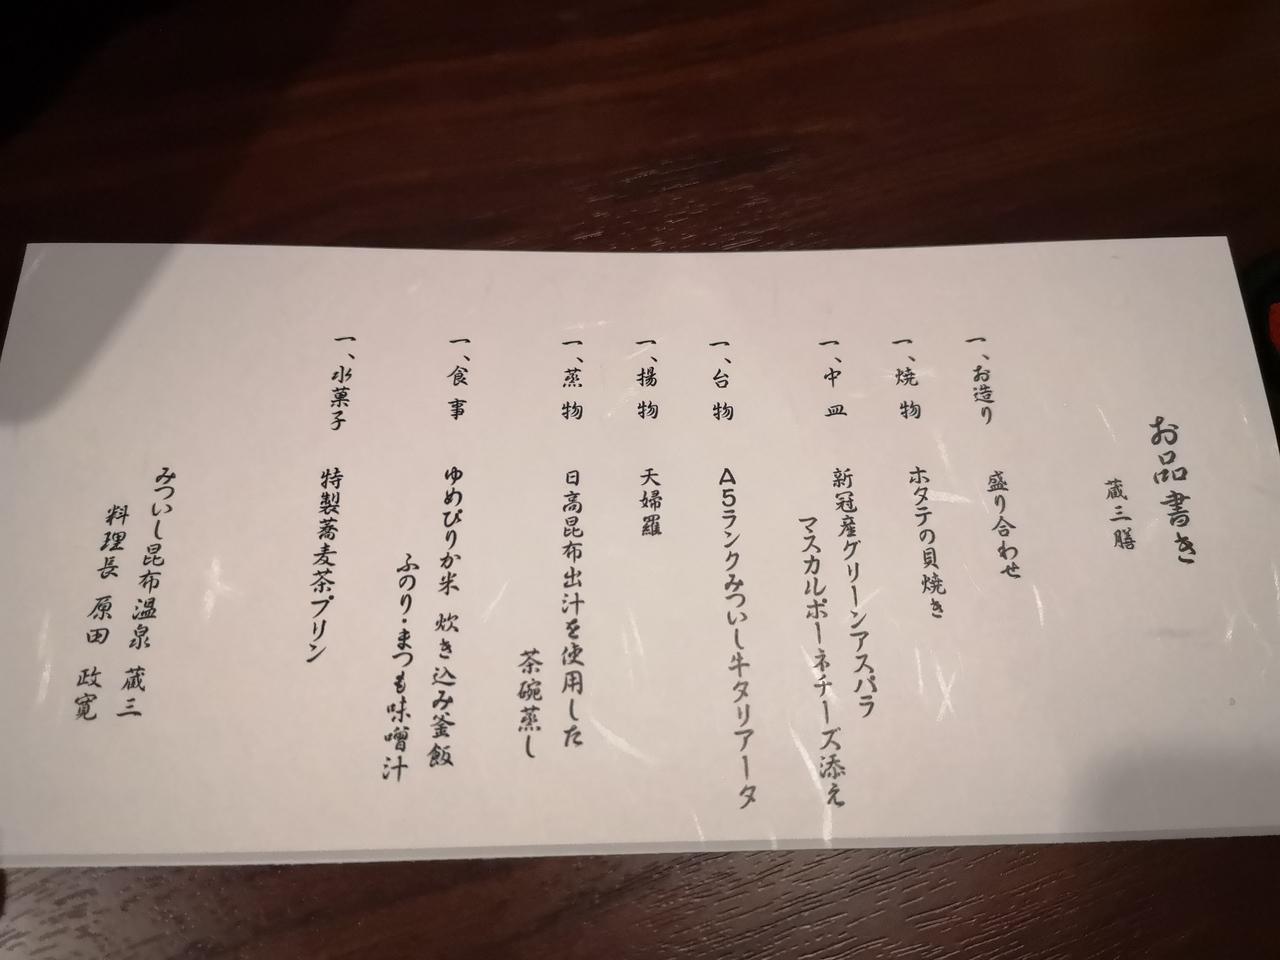 お品書き
蔵三膳
一、お造り 盛り合わせ
一、焼物 ホタテの貝焼き
一、中皿 新冠産グリーンアスパラ
マスカルポーネチーズ添え
一、台物 A5ランクみついし牛タリアータ
一、揚物 天婦羅
一、蒸物 日高昆布出汁を使用した
茶碗蒸し
一、食事 ゆめぴりか米 炊き込み釜飯
ふのり・まつも味噌汁
一、水菓子 特製蕎麦茶プリン
みついし昆布温泉 蔵三
料理長 原田 政寛